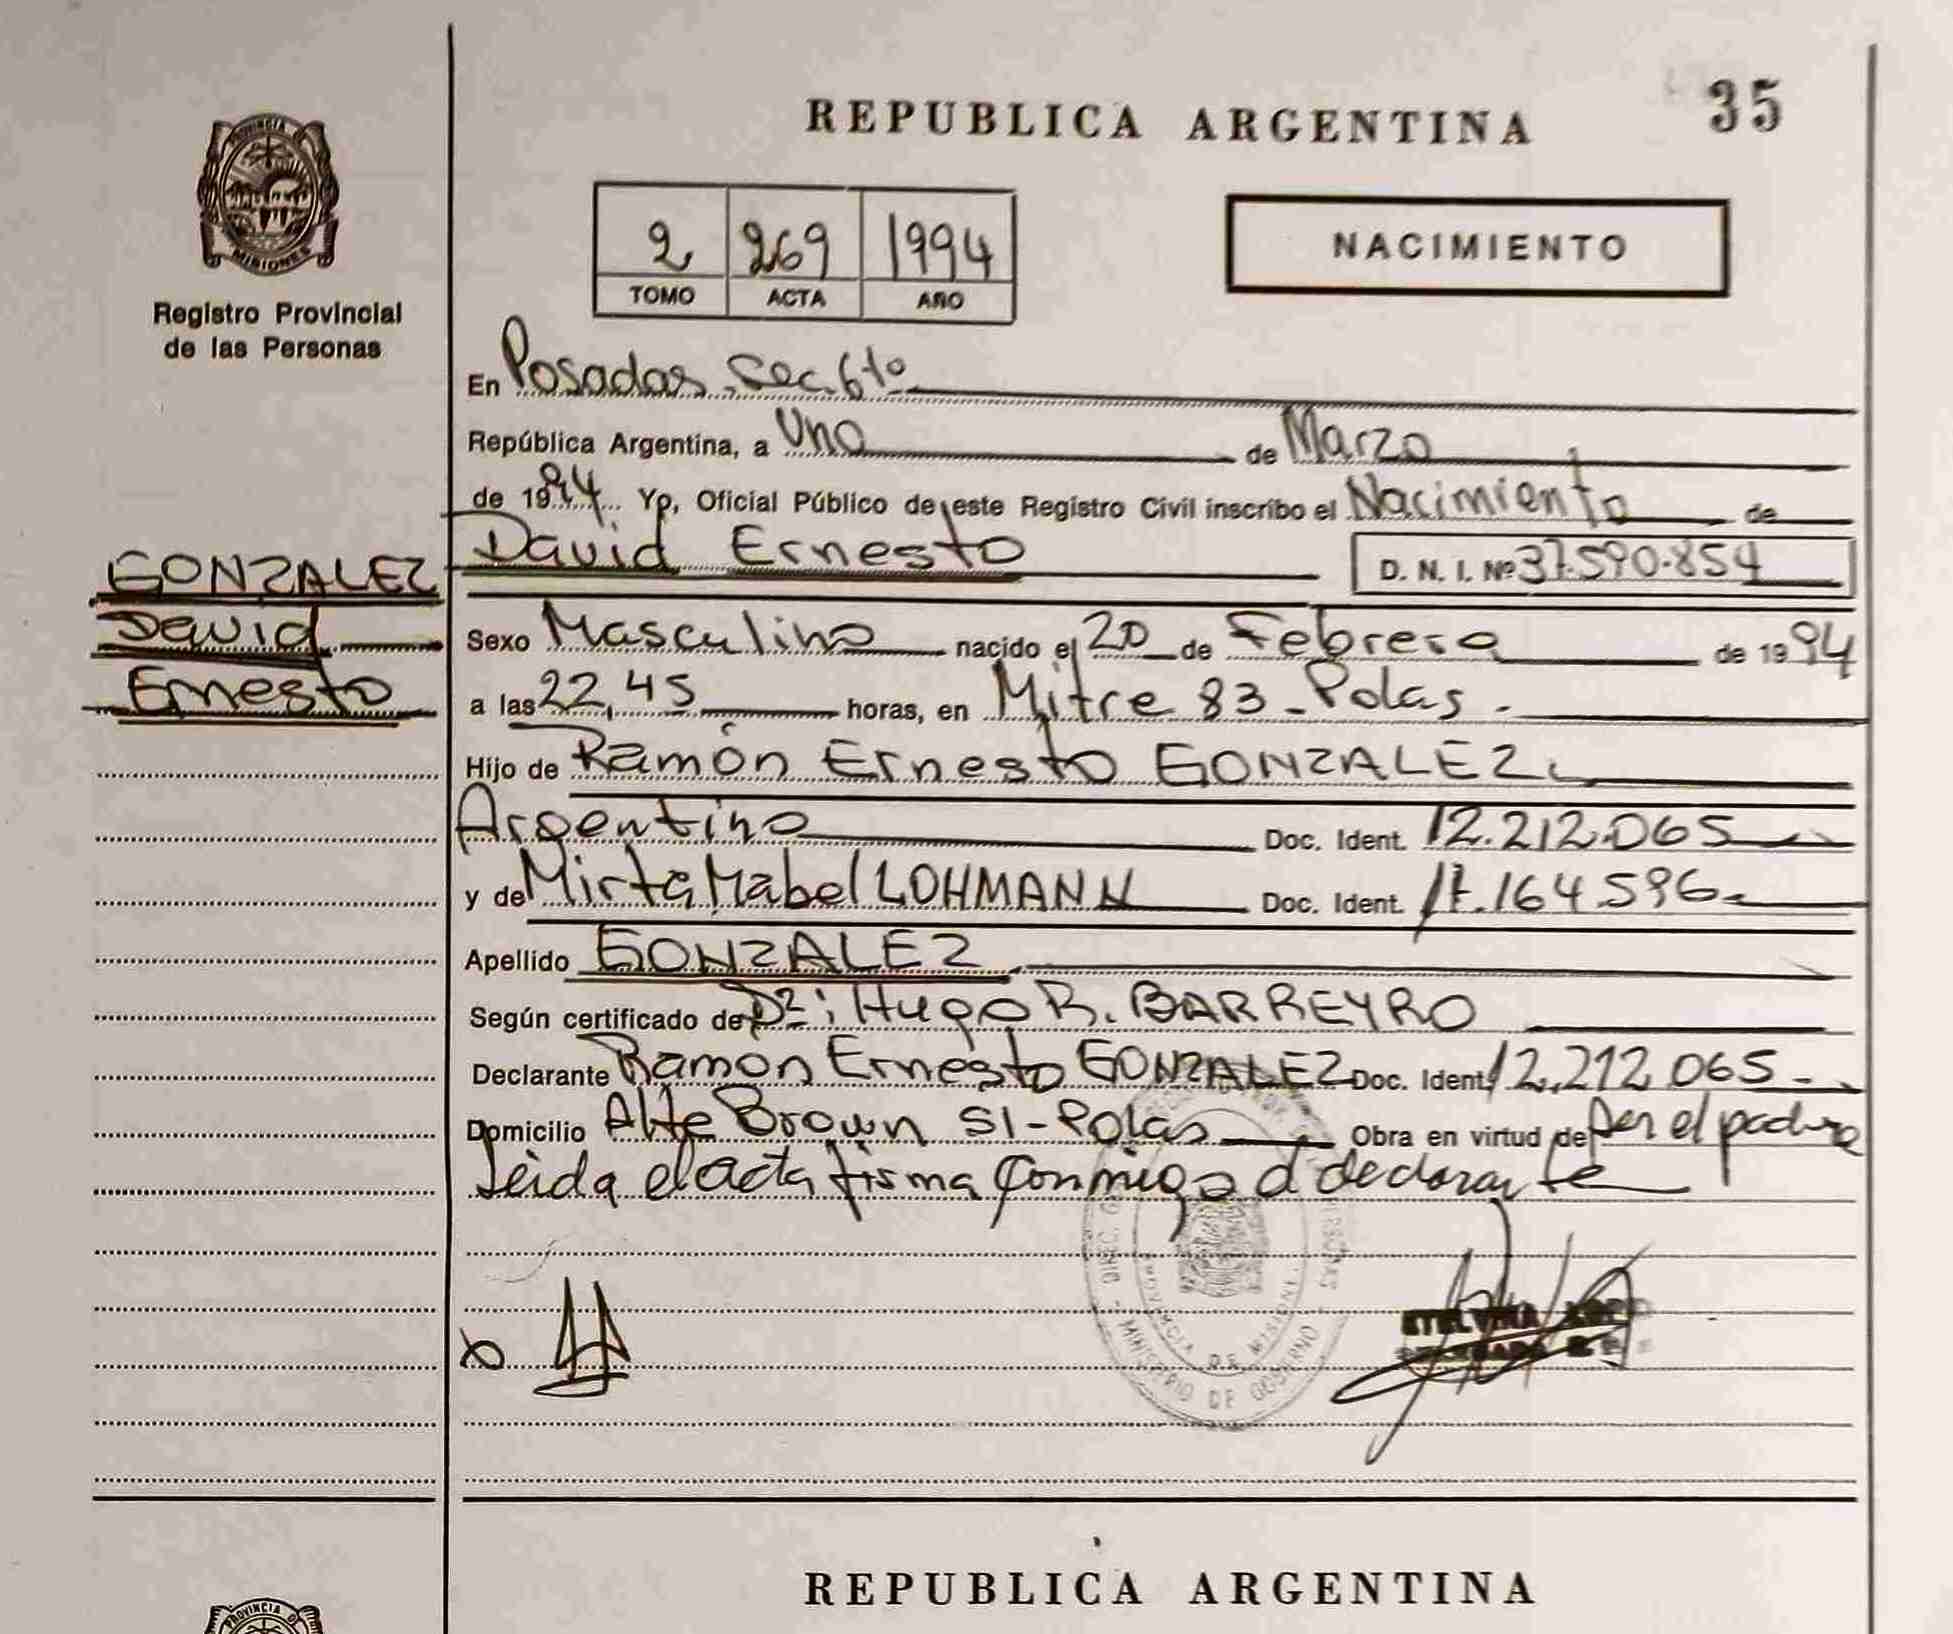 REPUBLICA ARGENTINA
35
PROVINCIA
MISIONES
Registro Provincial
de las Personas
2 269 1994
TOMO ACTA AÑO
NACIMIENTO
En Posadas. Sec. 6to
República Argentina, a Uno de Marzo
de 1994 Yo, Oficial Público de este Registro Civil inscribo el Nacimiento de
David Ernesto D. N. I. Nº 37.590.854
GONZALEZ
David
Ernesto
Sexo Masculino nacido el 20 de Febrero de 1994
a las 22,45 horas, en Mitre 83 - Pdas.
Hijo de Ramón Ernesto GONZALEZ
Argentino Doc. Ident. 12.212.065
y de Mirta Mabel LOHMANN Doc. Ident. 17.164.596
Apellido GONZALEZ
Según certificado de Dr: Hugo R. BARREYRO
Declarante Ramon Ernesto GONZALEZ Doc. Ident. 12.212.065
Domicilio Alte Brown 51 - Pdas Obra en virtud de Ser el padre
Leida el acta firma conmigo el declarante
PROVINCIA DE MISIONES
MINISTERIO DE GOBIERNO
REPUBLICA ARGENTINA
PROVINCIA